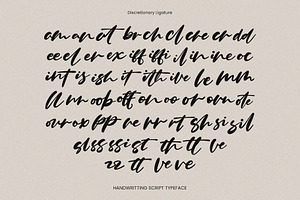 Discretionary Ligature
am an at br ch cl cre er dd
ee el er ex iff iffi il in ine oc
int is ish it ith ive le mm
ll nn oob off on oo or orn ote
our ox pp re rr rt sh si sil
gl ss ssi st th tt ve
zz tt ve ve
HANDWRITTING SCRIPT TYPEFACE